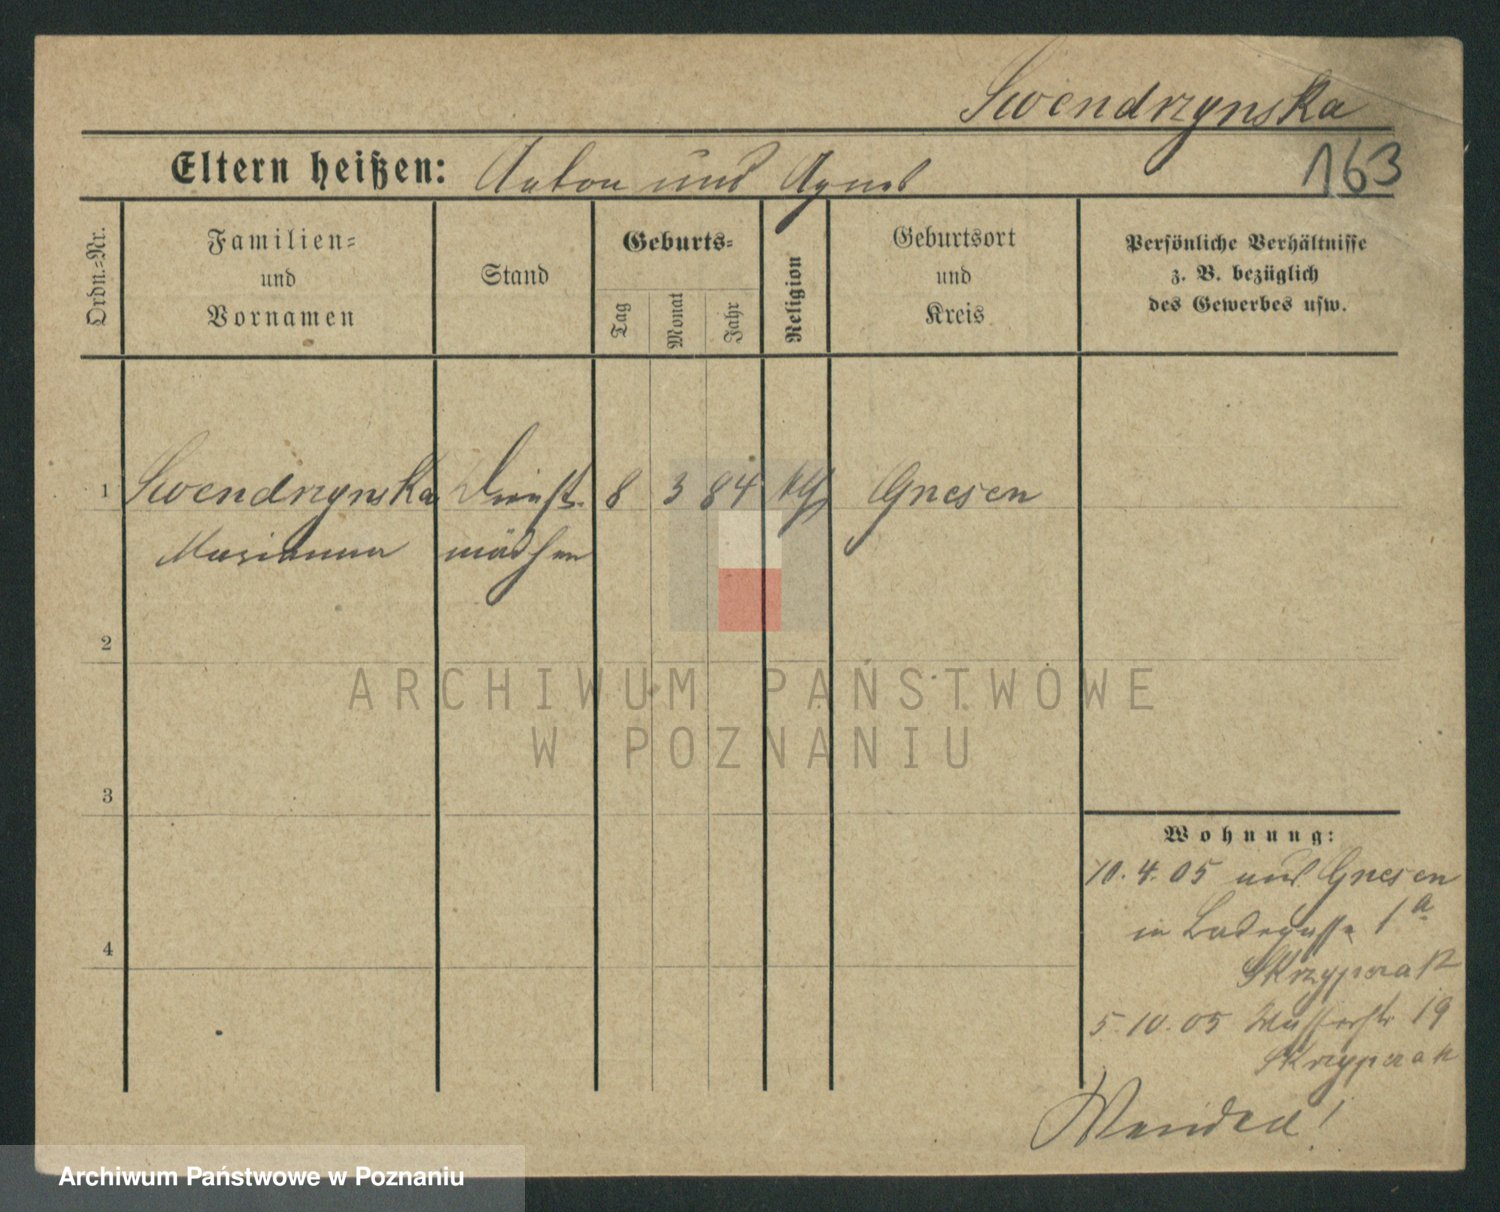 Swendrzynska
163
Eltern heißen: Anton und Agnes
Ordn.-Nr.
Familien-
und
Vornamen
Stand
Geburts-
Tag
Monat
Jahr
Religion
Geburtsort
und
Kreis
Persönliche Verhältnisse
z. B. bezüglich
des Gewerbes usw.
1 Swendrzynska Dienst- 8 3 84 kth Gnesen
Marianna mädchen
2
3
4
Wohnung:
10. 4. 05 aus Gnesen
in Badegasse 1a
Skrzypczak
5. 10. 05 Wasserstr 19
Skrzypczak
Wenden!
ARCHIWUM PAŃSTWOWE
W POZNANIU
Archiwum Państwowe w Poznaniu